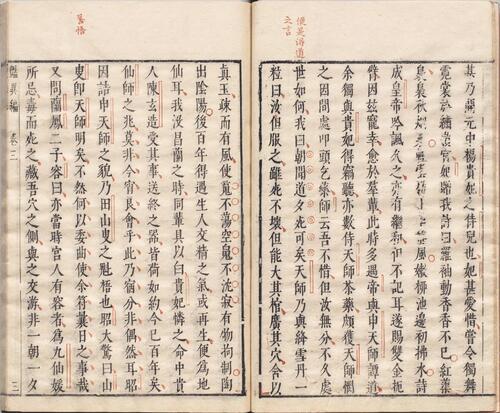 便是得道
之言
某乃開元中楊貴妃之侍兒也妃甚愛惜嘗令獨舞
霓裳於繡嶺宮妃贈我詩曰羅袖動香香不已紅蕖
裊裊秋烟裏輕雲嶺上乍搖風嫩柳池邊初拂水詩
成皇帝吟諷久之亦有繼和但不記耳遂贈雙金扼
臂因茲寵幸愈於羣輩此時多遇帝與申天師譚道
余獨與貴妃得竊聽亦數侍天師茶藥頗獲天師憫
之因間處叩頭乞藥師云吾不惜但汝無分不久處
世如何我曰朝聞道夕死可矣天師乃與絳雪丹一
粒曰汝但服之雖死不壞但能大其棺廣其穴含以
真玉疎而有風使魂不蕩空魄不沈寂有物拘制陶
出陰陽後百年得遇生人交精之氣或再生便為地
仙耳我沒昌蘭之時同輩具以白貴妃憐之命中貴
人陳玄造受其事送終之器皆荷如約今已百年矣
仙師之兆莫非今宵良會乎此乃宿分非偶然耳昭
因詰申天師之貌乃田山叟之魁梧也昭大驚曰山
叟即天師明矣不然何以委曲使令符曩日之事哉
又問蘭鳳二子容曰亦當時宮人有容者為九仙媛
所忌毒而死之藏吾穴之側與之交游非一朝一夕
豔異編 卷三 三